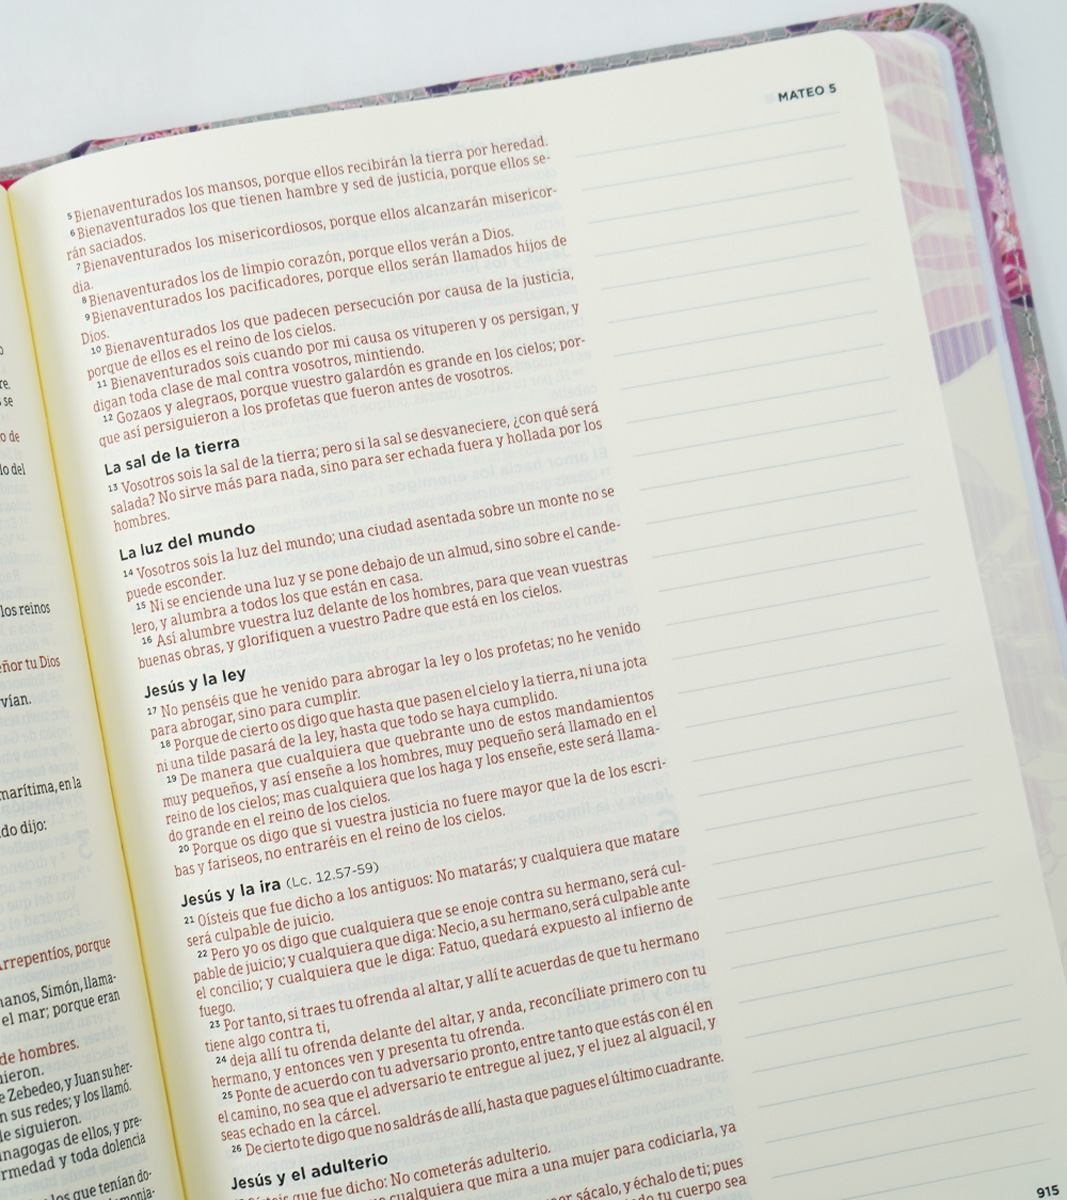 MATEO 5
5 Bienaventurados los mansos, porque ellos recibirán la tierra por heredad.
6 Bienaventurados los que tienen hambre y sed de justicia, porque ellos se-
rán saciados.
7 Bienaventurados los misericordiosos, porque ellos alcanzarán misericor-
dia.
8 Bienaventurados los de limpio corazón, porque ellos verán a Dios.
9 Bienaventurados los pacificadores, porque ellos serán llamados hijos de
Dios.
10 Bienaventurados los que padecen persecución por causa de la justicia,
porque de ellos es el reino de los cielos.
11 Bienaventurados sois cuando por mi causa os vituperen y os persigan, y
digan toda clase de mal contra vosotros, mintiendo.
12 Gozaos y alegraos, porque vuestro galardón es grande en los cielos; por-
que así persiguieron a los profetas que fueron antes de vosotros.
La sal de la tierra
13 Vosotros sois la sal de la tierra; pero si la sal se desvaneciere, ¿con qué será
salada? No sirve más para nada, sino para ser echada fuera y hollada por los
hombres.
La luz del mundo
14 Vosotros sois la luz del mundo; una ciudad asentada sobre un monte no se
puede esconder.
15 Ni se enciende una luz y se pone debajo de un almud, sino sobre el cande-
lero, y alumbra a todos los que están en casa.
16 Así alumbre vuestra luz delante de los hombres, para que vean vuestras
buenas obras, y glorifiquen a vuestro Padre que está en los cielos.
Jesús y la ley
17 No penséis que he venido para abrogar la ley o los profetas; no he venido
para abrogar, sino para cumplir.
18 Porque de cierto os digo que hasta que pasen el cielo y la tierra, ni una jota
ni una tilde pasará de la ley, hasta que todo se haya cumplido.
19 De manera que cualquiera que quebrante uno de estos mandamientos
muy pequeños, y así enseñe a los hombres, muy pequeño será llamado en el
reino de los cielos; mas cualquiera que los haga y los enseñe, este será llama-
do grande en el reino de los cielos.
20 Porque os digo que si vuestra justicia no fuere mayor que la de los escri-
bas y fariseos, no entraréis en el reino de los cielos.
Jesús y la ira (Lc. 12.57-59)
21 Oísteis que fue dicho a los antiguos: No matarás; y cualquiera que matare
será culpable de juicio.
22 Pero yo os digo que cualquiera que se enoje contra su hermano, será cul-
pable de juicio; y cualquiera que diga: Necio, a su hermano, será culpable ante
el concilio; y cualquiera que le diga: Fatuo, quedará expuesto al infierno de
fuego.
23 Por tanto, si traes tu ofrenda al altar, y allí te acuerdas de que tu hermano
tiene algo contra ti,
24 deja allí tu ofrenda delante del altar, y anda, reconcíliate primero con tu
hermano, y entonces ven y presenta tu ofrenda.
25 Ponte de acuerdo con tu adversario pronto, entre tanto que estás con él en
el camino, no sea que el adversario te entregue al juez, y el juez al alguacil, y
seas echado en la cárcel.
26 De cierto te digo que no saldrás de allí, hasta que pagues el último cuadrante.
Jesús y el adulterio
Oísteis que fue dicho: No cometerás adulterio.
cualquiera que mira a una mujer para codiciarla, ya
sácalo, y échalo de ti; pues
tu cuerpo sea
915
se
o de
lo del
los reinos
tu Dios
marítima, en la
do dijo:
Arrepentíos, porque
manos, Simón, llama-
el mar; porque eran
de hombres.
Zebedeo, y Juan su her-
n sus redes; y los llamó.
siguieron.
de ellos, y pre-
y toda dolencia
los que tenían do-